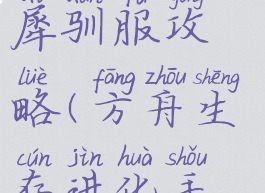 犀驯服攻
lüè fāng zhōu shēng
略(方舟生
cún jìn huà shǒu
存进化手